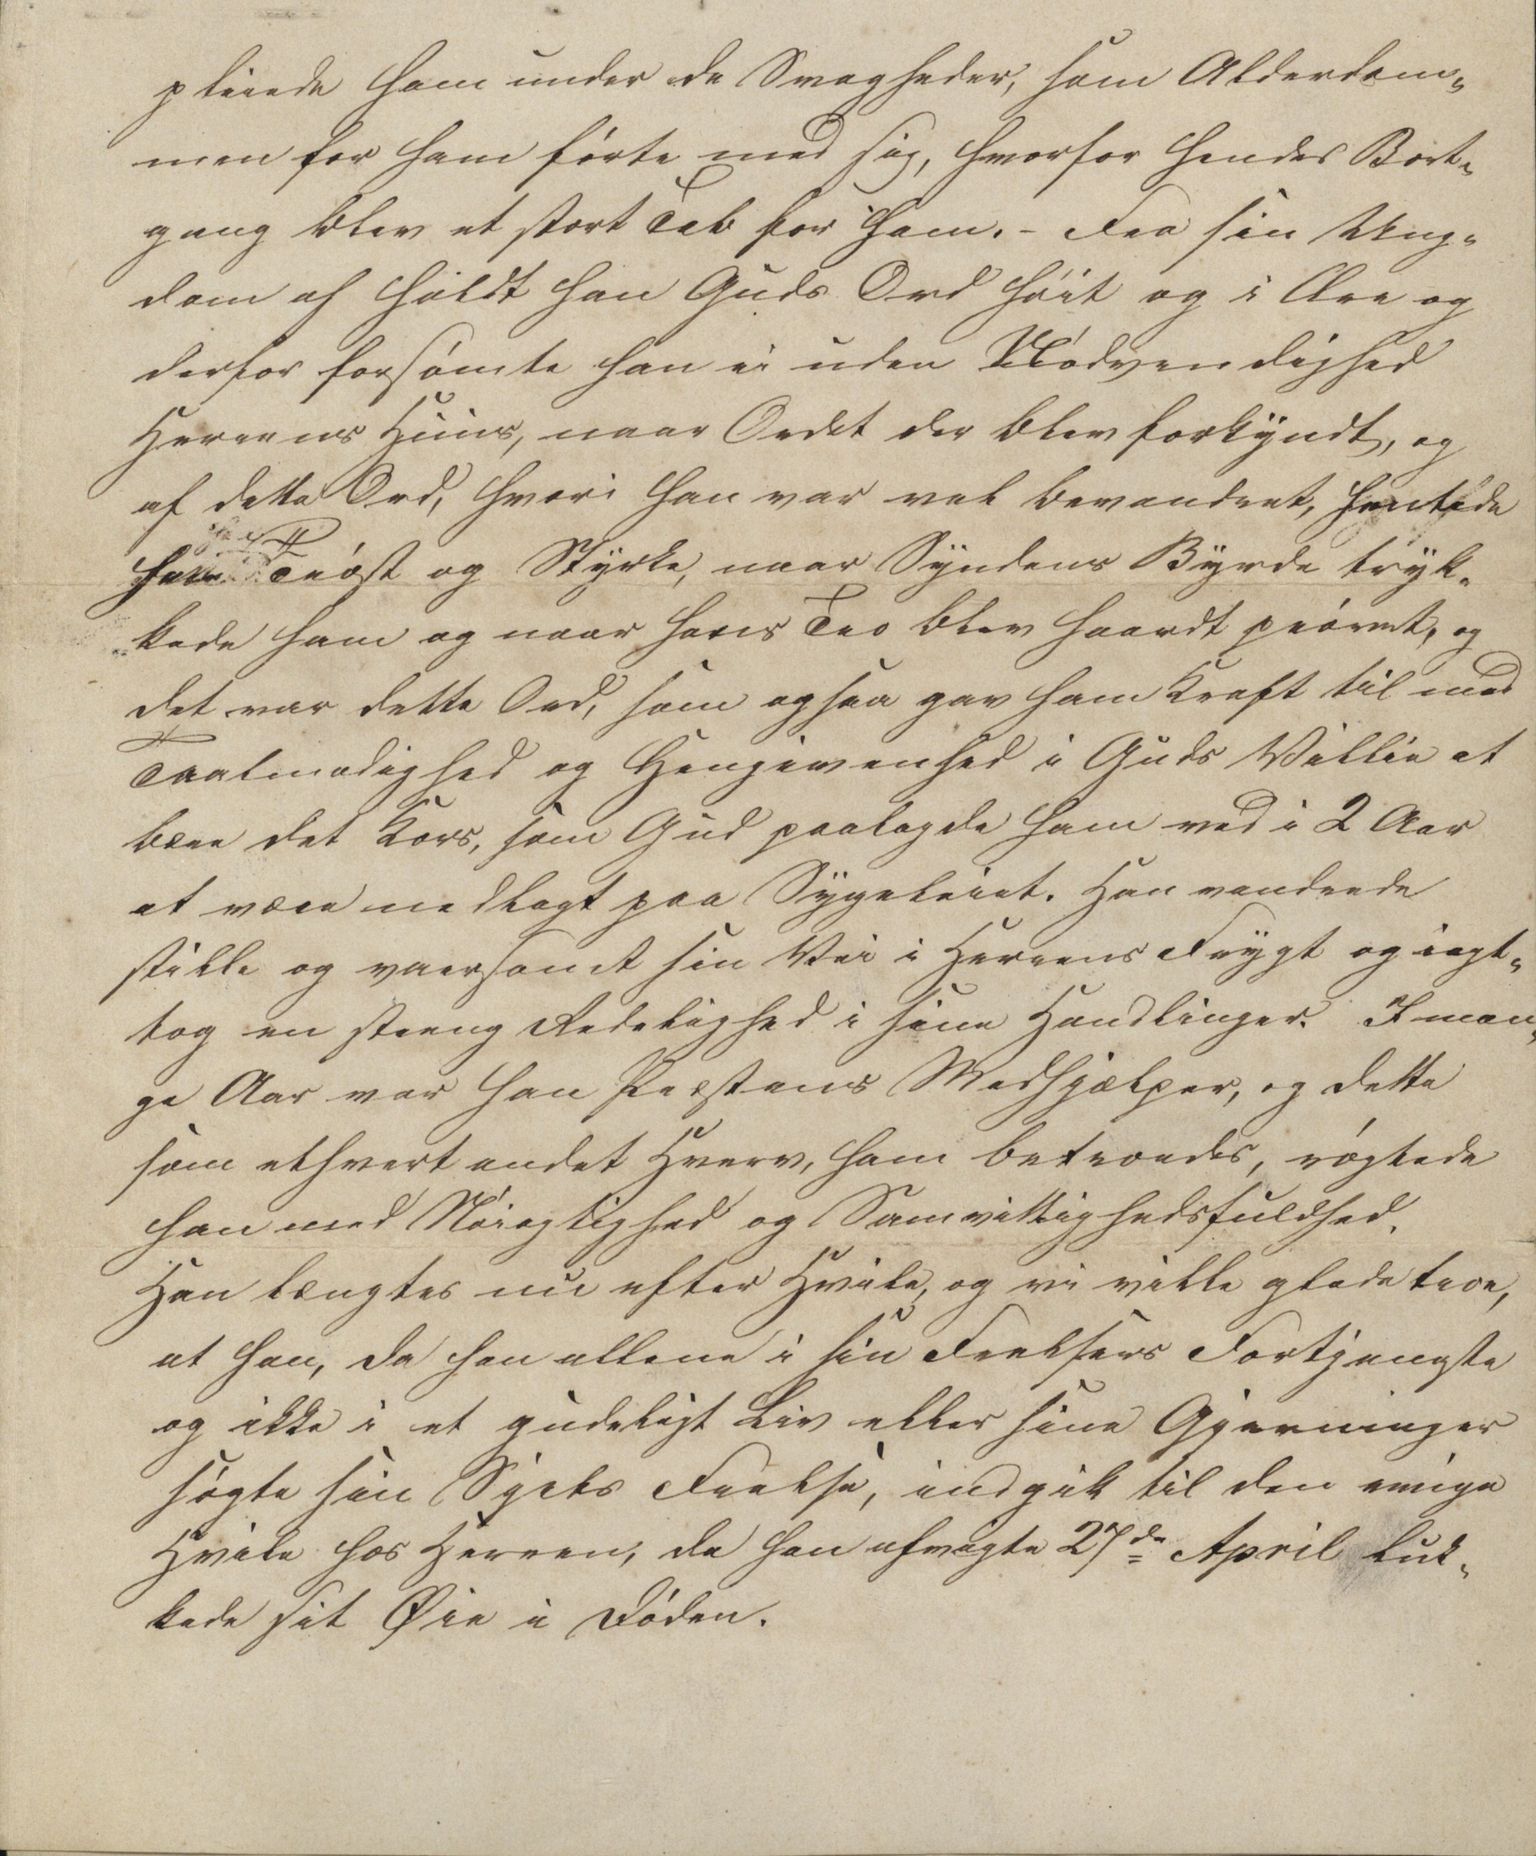 pleiede ham under de Svagheder, som Alderdom-
men for ham førte med sig, hvorfor hendes Bort-
gang blev et stort Tab for ham. - Fra sin Ung-
dom af holdt han Guds Ord høit og i Ære og
derfor forsømte han ei uden Nødvendighed
Herrens Huus, naar Ordet der blev forkyndt, og
af dette Ord, hvori han var vel bevandret, hentede
han Trøst og Styrke, naar Syndens Byrde tryk-
kede ham og naar hans Tro blev haardt prøvet, og
det var dette Ord, som ogsaa gav ham Kraft til med
Taalmodighed og Hengivenhed i Guds Villie at
bære det Kors, som Gud paalagde ham ved i 2 Aar
at være nedlagt paa Sygeleiet. Han vandrede
stille og varsomt sin Vei i Herrens Frygt og iagt-
tog en streng Redelighed i sine Handlinger. I man-
ge Aar var han Præstens Medhjælper, og dette
som ethvert andet Hverv, ham betroedes, røgtede
han med Nøiagtighed og Samvittighedsfuldhed.
Han længtes nu efter Hvile, og vi ville glade troe,
at han, da han allene i sin Frelsers Fortjeneste
og ikke i et gudeligt Liv eller sine Gjerninger
søgte sin Sjæls Frelse, indgik til den evige
Hvile hos Herren, da han afvigte 27de April luk-
kede sit Øie i Døden.